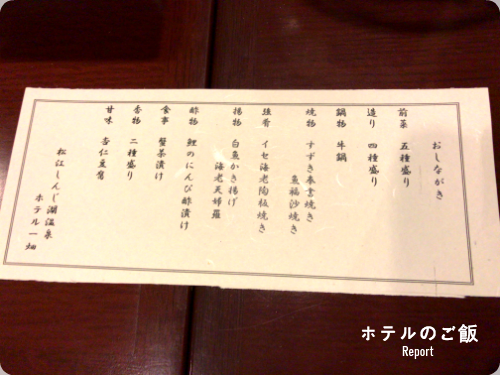 おしながき
前菜 五種盛り
造り 四種盛り
鍋物 牛鍋
焼物 すずき奉書焼き
魚福沙焼き
強肴 イセ海老陶板焼き
揚物 白魚かき揚げ
海老天婦羅
酢物 鯉のにんび酢漬け
食事 蟹茶漬け
香物 二種盛り
甘味 杏仁豆腐
松江しんじ湖温泉
ホテル一畑
ホテルのご飯
Report